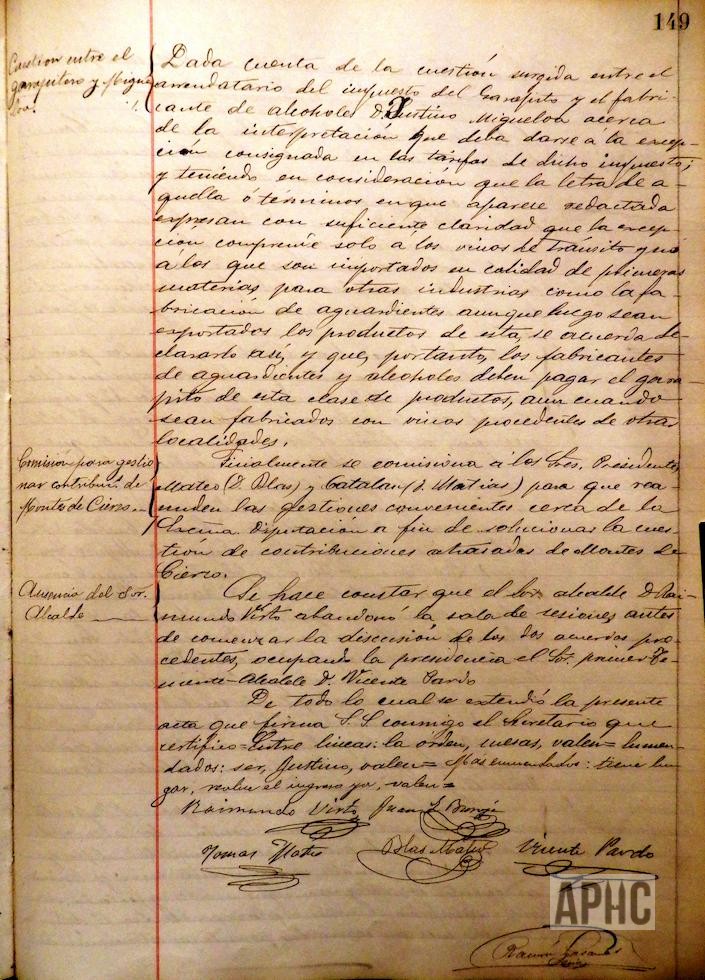 149
Cuestion entre el
garapitero y Migue
loa.
Dada cuenta de la cuestión surgida entre el
arrendatario del impuesto del Garapito y el fabri-
cante de alcoholes D. Justino Migueloa acerca
de la interpretación que deba darse a la excep-
ción consignada en las tarifas de dicho impuesto;
y teniendo en consideración que la letra de a-
quella ó términos en que aparece redactada
expresan con suficiente claridad que la excep-
ción comprende solo a los vinos de tránsito y no
á los que son importados en calidad de primeras
materias para otras industrias como la fa-
bricación de aguardientes aunque luego sean
exportados los productos de esta, se acuerda de-
clararlo así, y que, por tanto, los fabricantes
de aguardientes y alcoholes deben pagar el gara-
pito de esta clase de productos, aun cuando
sean fabricados con vinos procedentes de otras
localidades.
Comisión para gestio
nar contribuns. de
Montes de Cierzo.
Finalmente se comisiona á los Sres. Presidente,
Mateo (D. Blas) y Catalan (D. Matias) para que rea-
nuden las gestiones convenientes cerca de la
Excma. Diputación a fin de solucionar la cues-
tión de contribuciones atrasadas de Montes de
Cierzo.
Ausencia del Sor.
Alcalde
Se hace constar que el Sor. alcalde D. Rai-
mundo Virto abandonó la sala de sesiones antes
de comenzar la discusión de los dos acuerdos pre-
cedentes, ocupando la presidencia el Sr. primer Te-
niente-Alcalde D. Vicente Pardo
De todo lo cual se extendió la presente
acta que firma S.S. conmigo el Secretario que
certifico=Entre lineas: la órden, mesas, valen= Enmen-
dados: ser, Justino, valen= Mas enmendados: tiene lu-
gar, el ingreso ya, valen=
Raimundo Virto Juan
Tomas Blas Mateo Vicente Pardo
APHC
Ramón